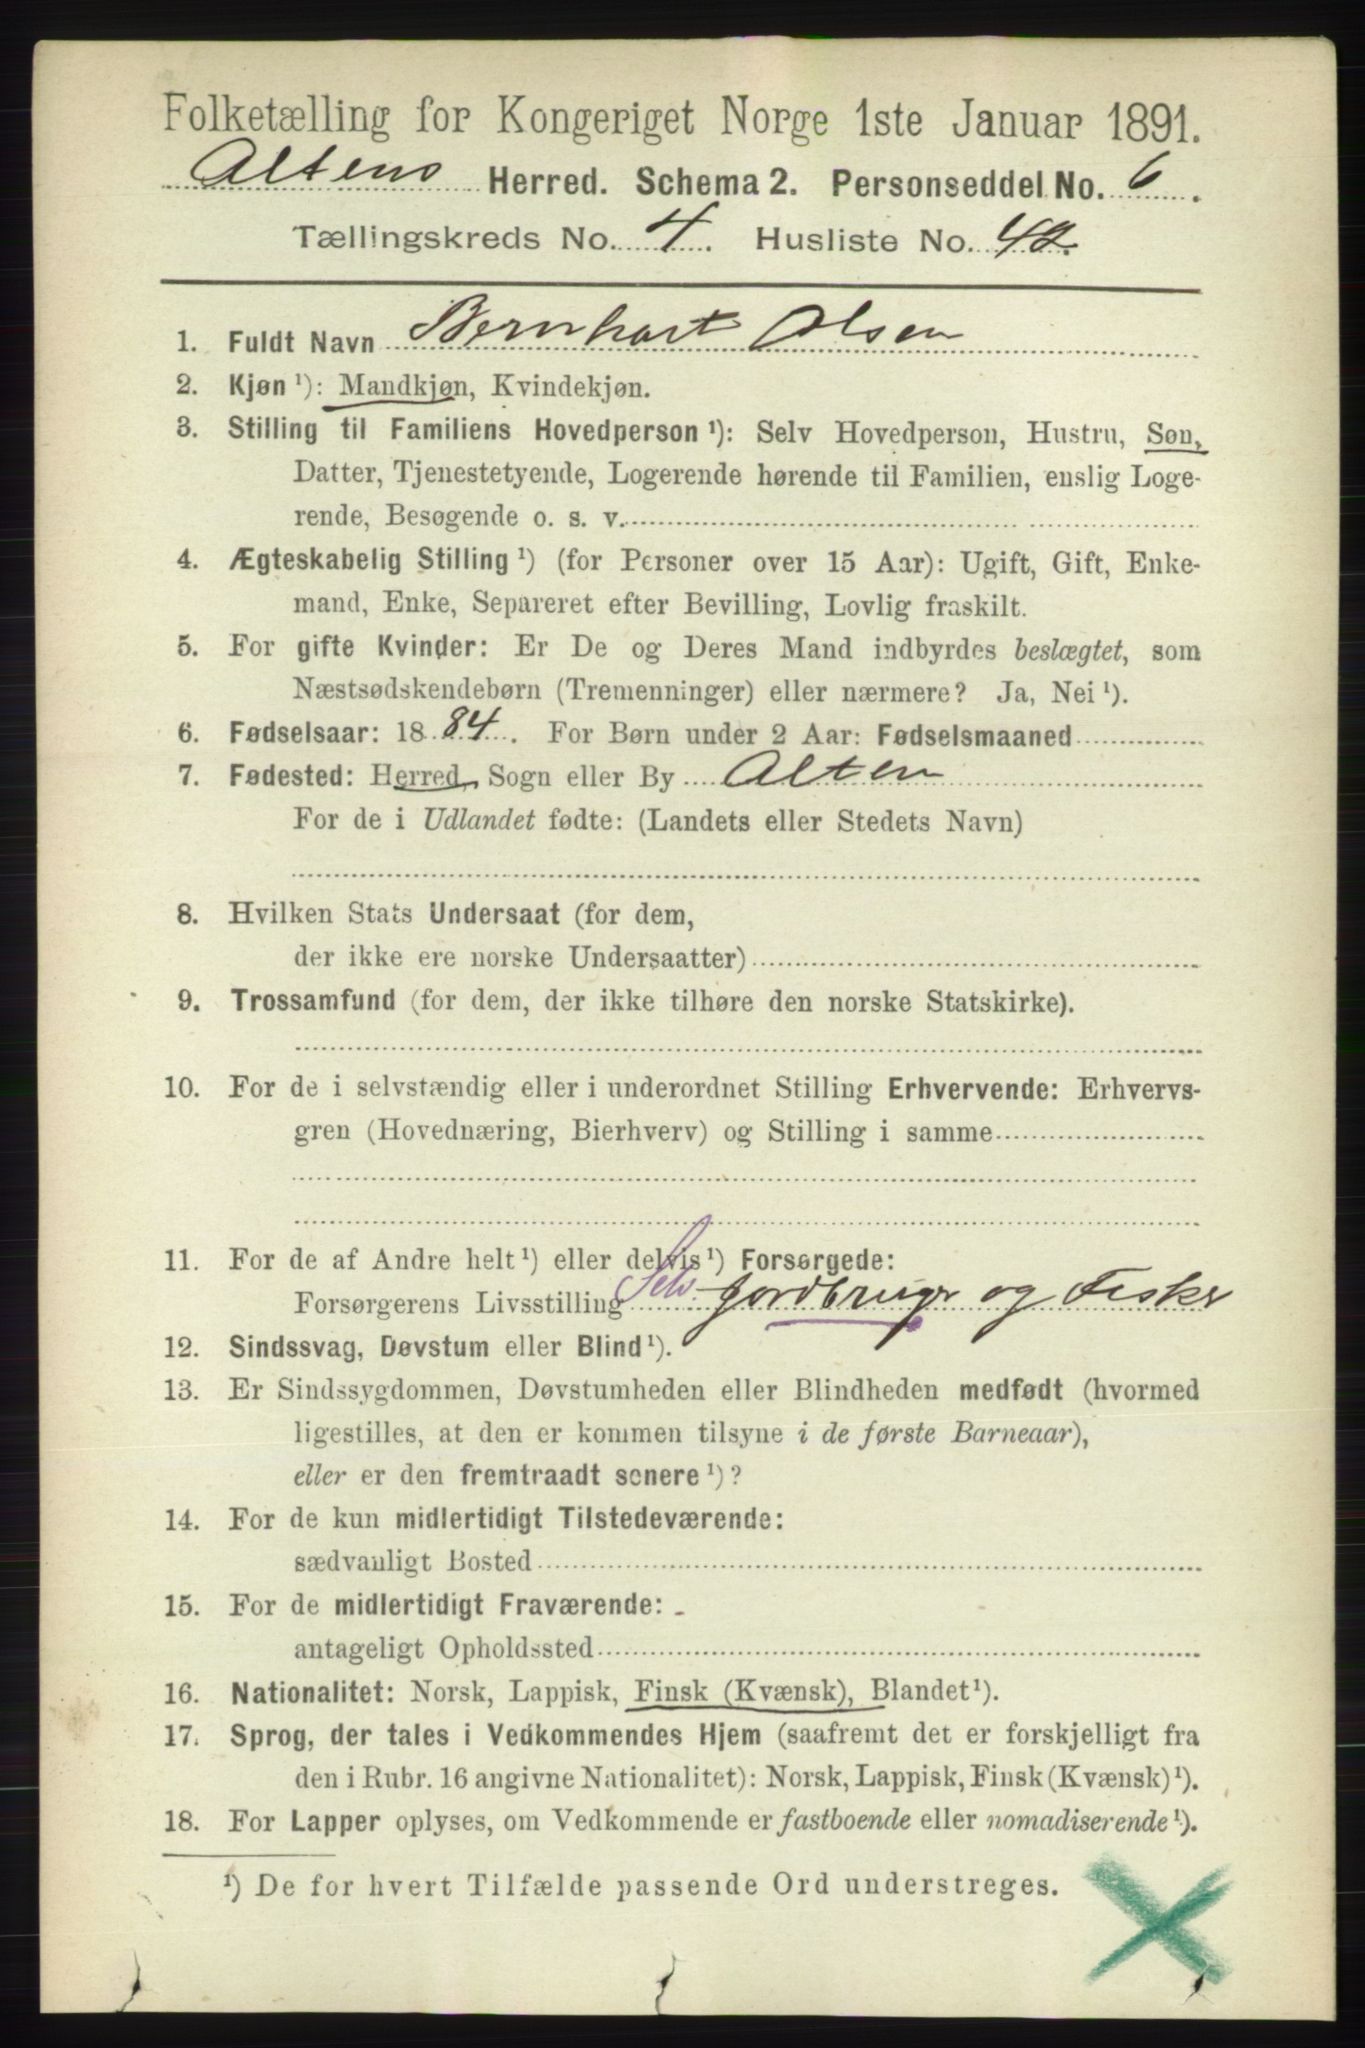 Folketælling for Kongeriget Norge 1ste Januar 1891.
Altens Herred. Schema 2. Personseddel No. 6.
Tællingskreds No. 4. Husliste No. 42.
1. Fuldt Navn Bernhart Olsen
2. Kjøn ¹): Mandkjøn, Kvindekjøn.
3. Stilling til Familiens Hovedperson ¹): Selv Hovedperson, Hustru, Søn,
Datter, Tjenestetyende, Logerende hørende til Familien, enslig Loge-
rende, Besøgende o. s. v.
4. Ægteskabelig Stilling ¹) (for Personer over 15 Aar): Ugift, Gift, Enke-
mand, Enke, Separeret efter Bevilling, Lovlig fraskilt.
5. For gifte Kvinder: Er De og Deres Mand indbyrdes beslægtet, som
Næstsødskendebørn (Tremenninger) eller nærmere? Ja, Nei ¹).
6. Fødselsaar: 1884. For Børn under 2 Aar: Fødselsmaaned
7. Fødested: Herred, Sogn eller By Alten
For de i Udlandet fødte: (Landets eller Stedets Navn)
8. Hvilken Stats Undersaat (for dem,
der ikke ere norske Undersaatter)
9. Trossamfund (for dem, der ikke tilhøre den norske Statskirke).
10. For de i selvstændig eller i underordnet Stilling Erhvervende: Erhvervs-
gren (Hovednæring, Bierhverv) og Stilling i samme
11. For de af Andre helt ¹) eller delvis ¹) Forsørgede:
Forsørgerens Livsstilling Selv. Jordbruger og Fisker
12. Sindssvag, Døvstum eller Blind ¹).
13. Er Sindssygdommen, Døvstumheden eller Blindheden medfødt (hvormed
ligestilles, at den er kommen tilsyne i de første Barneaar),
eller er den fremtraadt senere ¹)?
14. For de kun midlertidigt Tilstedeværende:
sædvanligt Bosted
15. For de midlertidigt Fraværende:
antageligt Opholdssted
16. Nationalitet: Norsk, Lappisk, Finsk (Kvænsk), Blandet ¹).
17. Sprog, der tales i Vedkommendes Hjem (saafremt det er forskjelligt fra
den i Rubr. 16 angivne Nationalitet): Norsk, Lappisk, Finsk (Kvænsk) ¹).
18. For Lapper oplyses, om Vedkommende er fastboende eller nomadiserende ¹).
¹) De for hvert Tilfælde passende Ord understreges.